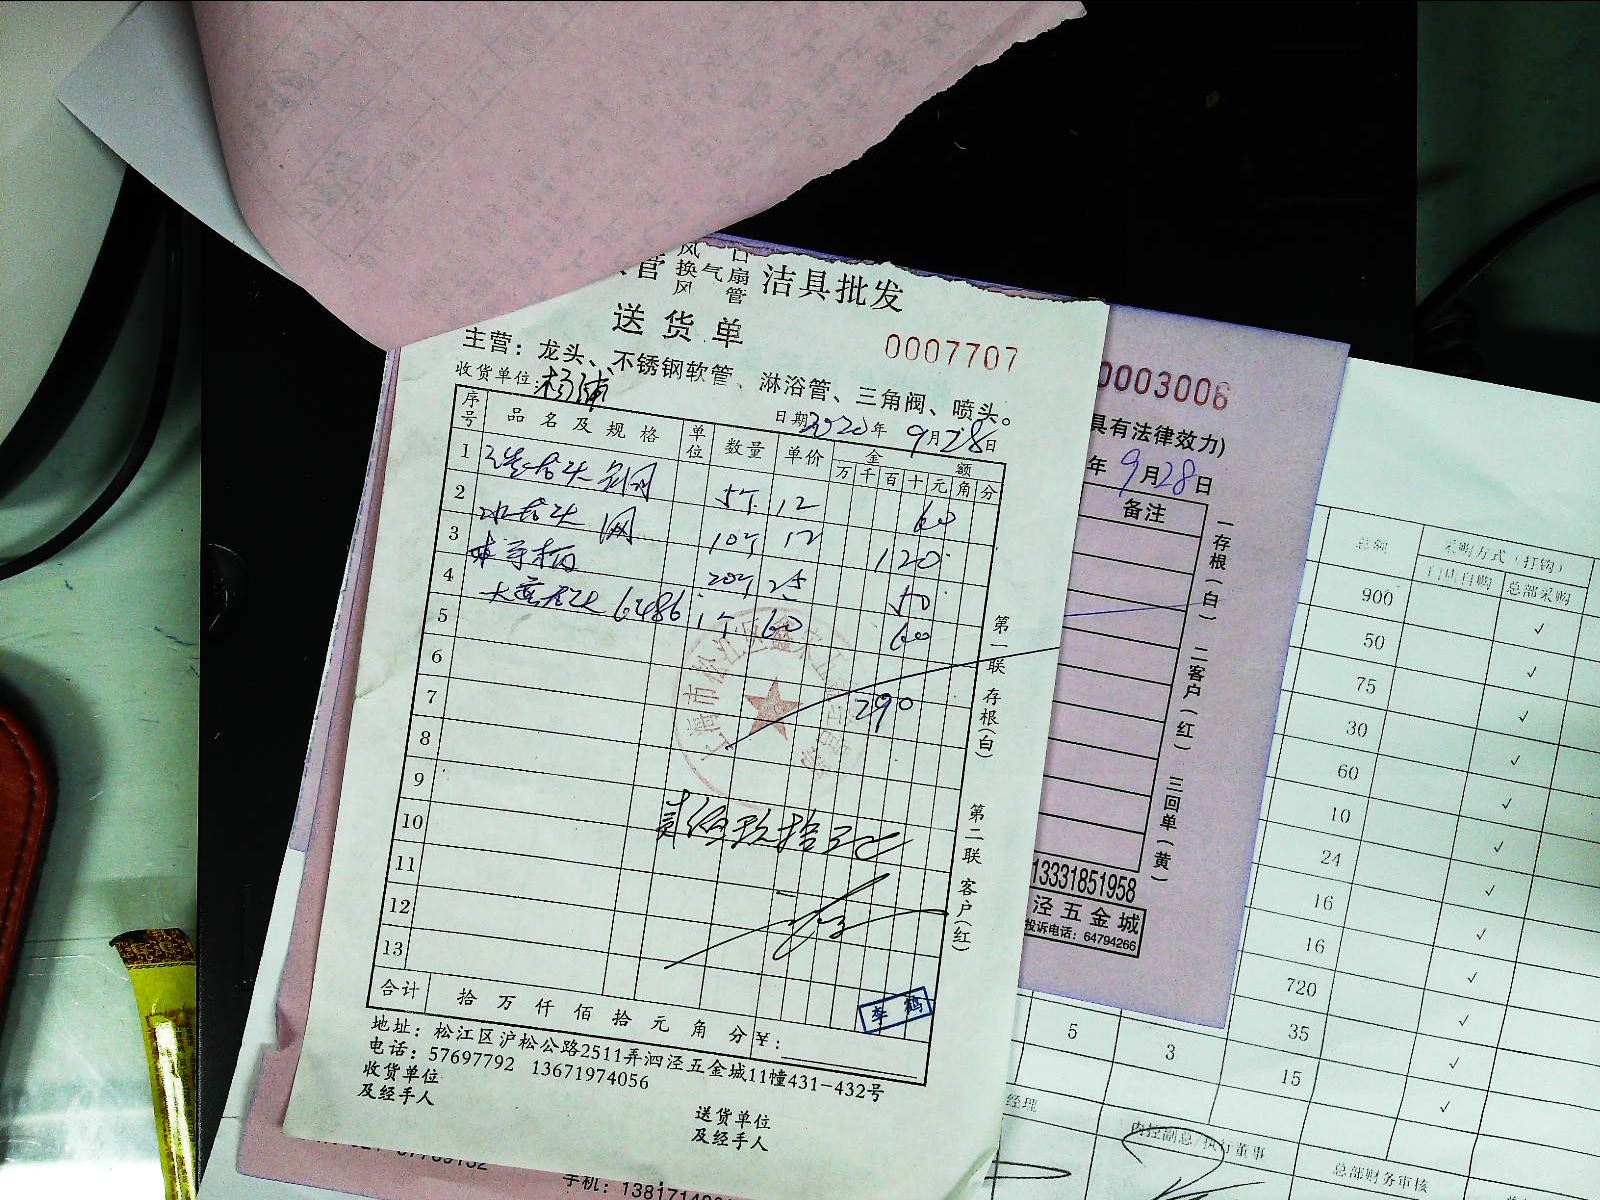 风 口
管 换气扇 洁具批发
风 管
送货单
0007707
主营：龙头、不锈钢软管、淋浴管、三角阀、喷头。
收货单位：杨浦
日期2020年9月28日
序号 品名及规格 单位 数量 单价 金额
万 千 百 十 元 角 分
1 5个 12 60
2 10个 12 120
3 50
4 6486 1个 60 60
5
6
7 290
8
9
10 贰佰玖拾元
11
12
13
合计 拾 万 仟 佰 拾 元 角 分 ¥：
李鹤
地址：松江区沪松公路2511弄泗泾五金城11幢431-432号
电话：57697792 13671974056
收货单位
及经手人
送货单位
及经手人
第一联 存根(白)
第二联 客户(红)
0003006
具有法律效力)
年9月28日
备注
一存根(白) 二客户(红) 三回单(黄)
13331851958
泾五金城
投诉电话：64794266
总额 采购方式（打钩）
总部采购
900 ✓
50 ✓
75 ✓
30 ✓
60 ✓
10 ✓
24 ✓
16 ✓
16 ✓
720 ✓
5 3 35 ✓
15 ✓
经理
内控副总/执行董事
总部财务审核
手机：138171